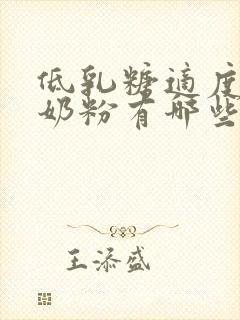 低乳糖适度
奶粉有哪些
王添盛